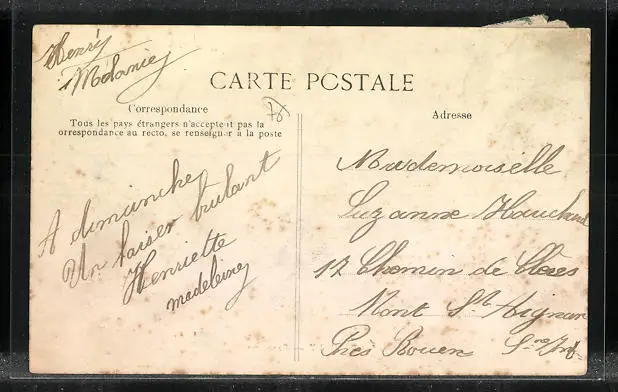 Henri
Mélanie
CARTE POSTALE
Correspondance
Tous les pays étrangers n'acceptent pas la
correspondance au recto, se renseigner à la poste
Adresse
76
A dimanche
Un baiser brulant
Henriette
madeleine
Mademoiselle
Suzanne
12 Chemin de
Mont St Aignan
Près Rouen Sne Inf